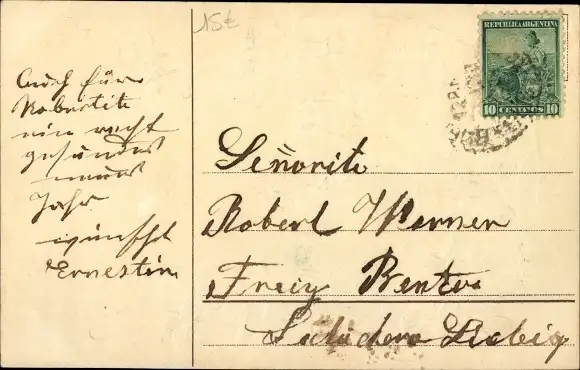 15€
Auch für
Robertito
ein recht
gesundes
neues
Jahr
wünscht
Ernestine
REPUBLICA ARGENTINA
10 CENTAVOS 10
Señorito
Robert Werner
Fray Bentos
Saladero Liebig